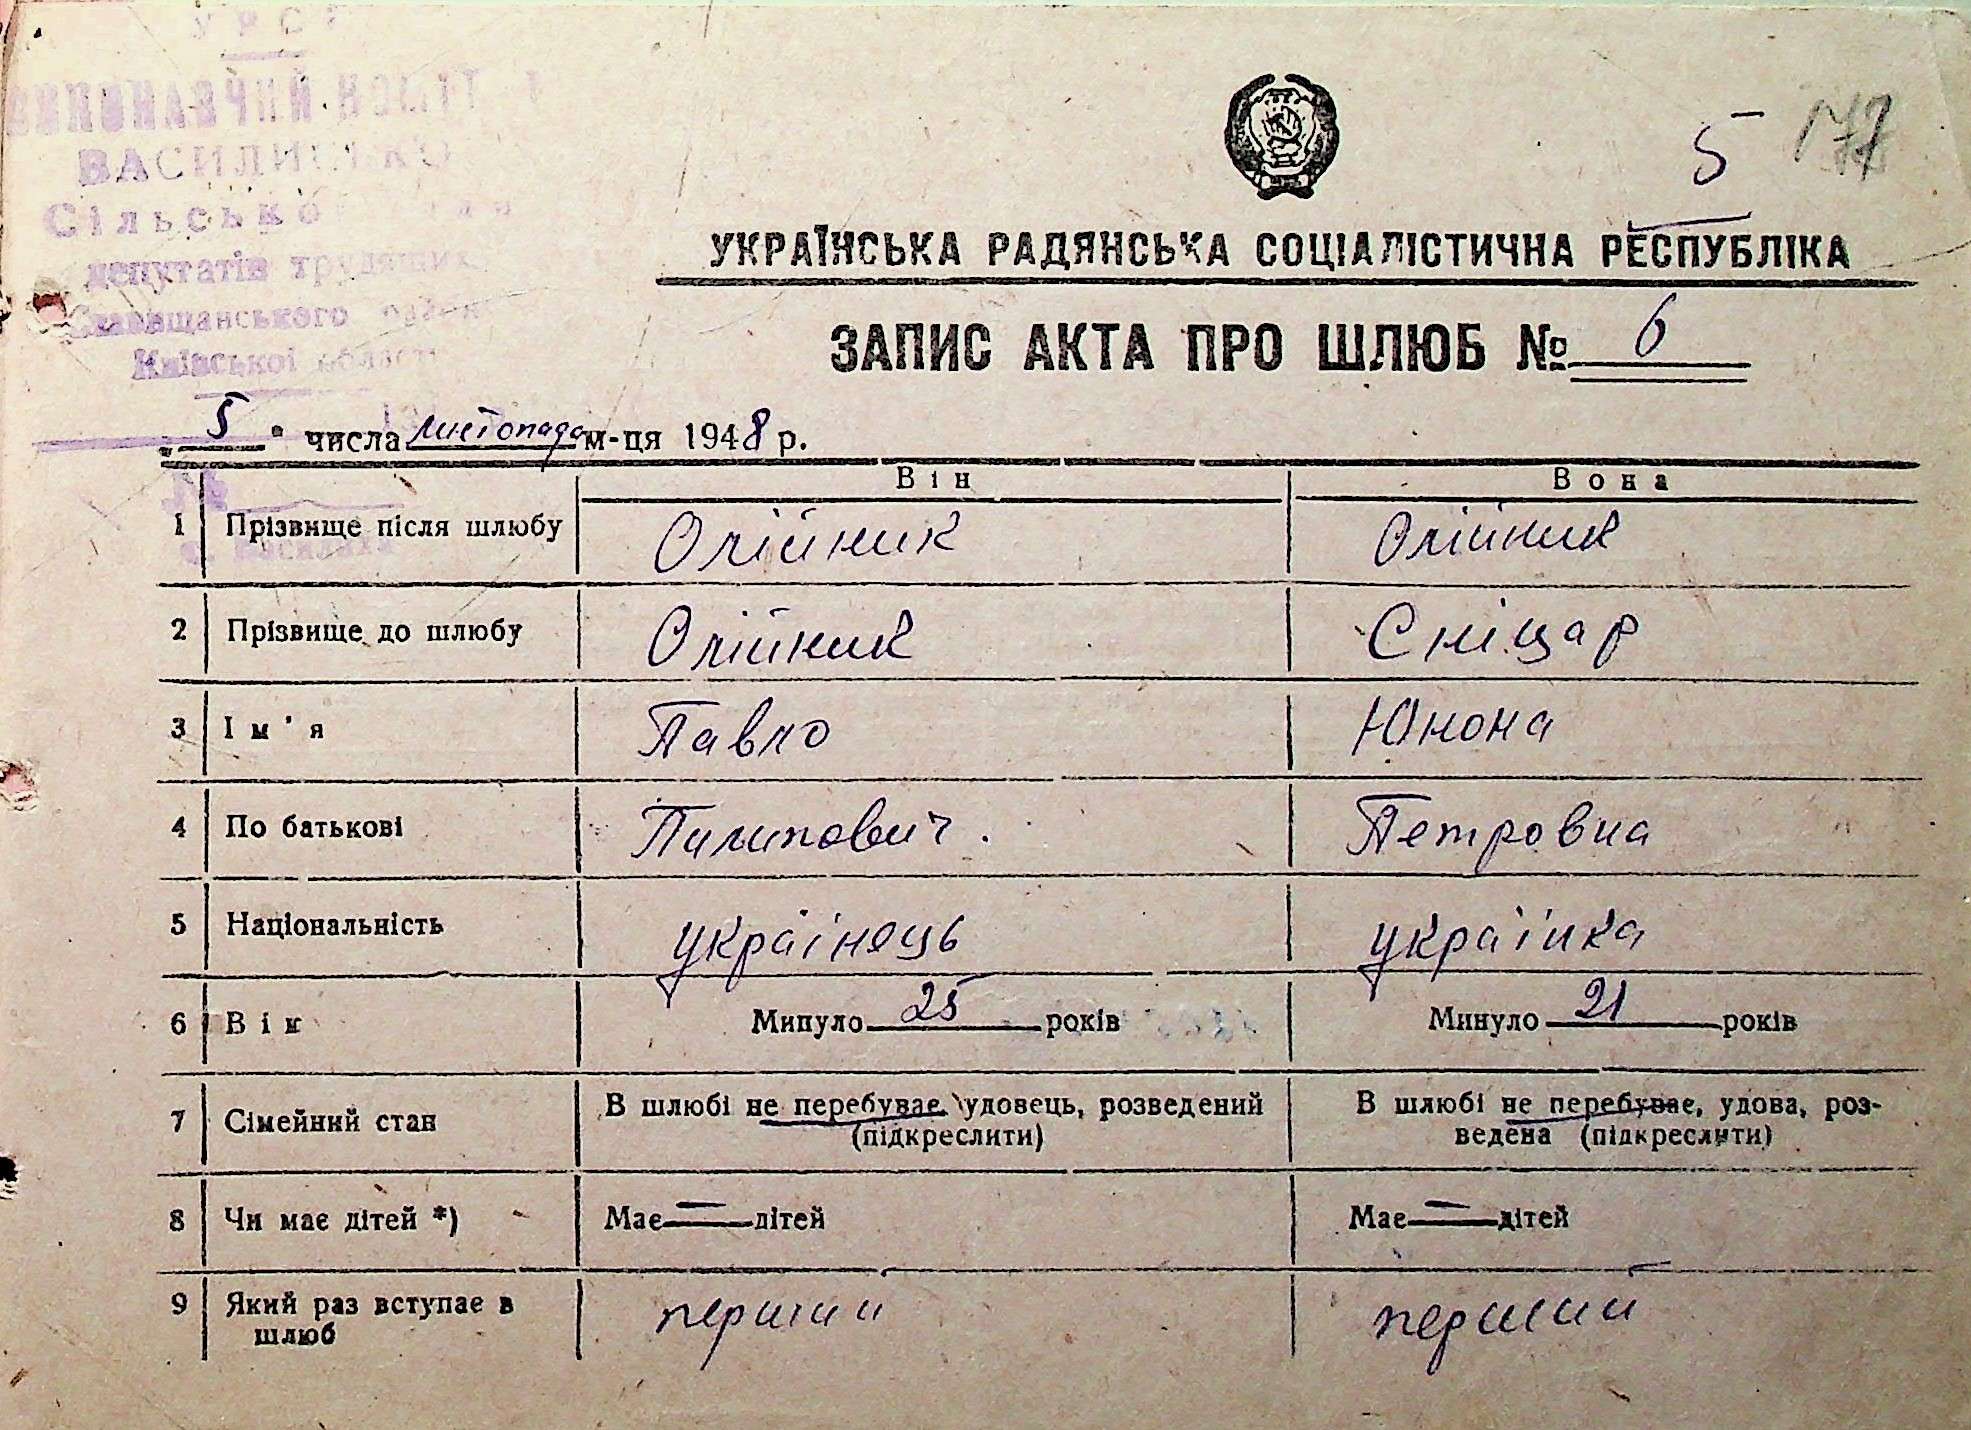 УРС
ВИКОНАВЧИЙ
ВАСИЛИ
Сільсько
депутатів трудящих
Ставищанського
Київської області
5
УКРАЇНСЬКА РАДЯНСЬКА СОЦІАЛІСТИЧНА РЕСПУБЛІКА
ЗАПИС АКТА ПРО ШЛЮБ № 6
5 " числа листопада м-ця 1948 р.
Він Вона
1 Прізвище після шлюбу Олійник Олійник
2 Прізвище до шлюбу Олійник Сніцар
3 Ім'я Павло Юнона
4 По батькові Пилипович. Петровна
5 Національність українець українка
6 Вік Минуло 25 років Минуло 21 років
7 Сімейний стан В шлюбі не перебуває, удовець, розведений (підкреслити) В шлюбі не перебуває, удова, роз-
ведена (підкреслити)
8 Чи має дітей *) Має — дітей Має — дітей
9 Який раз вступає в шлюб перший перший